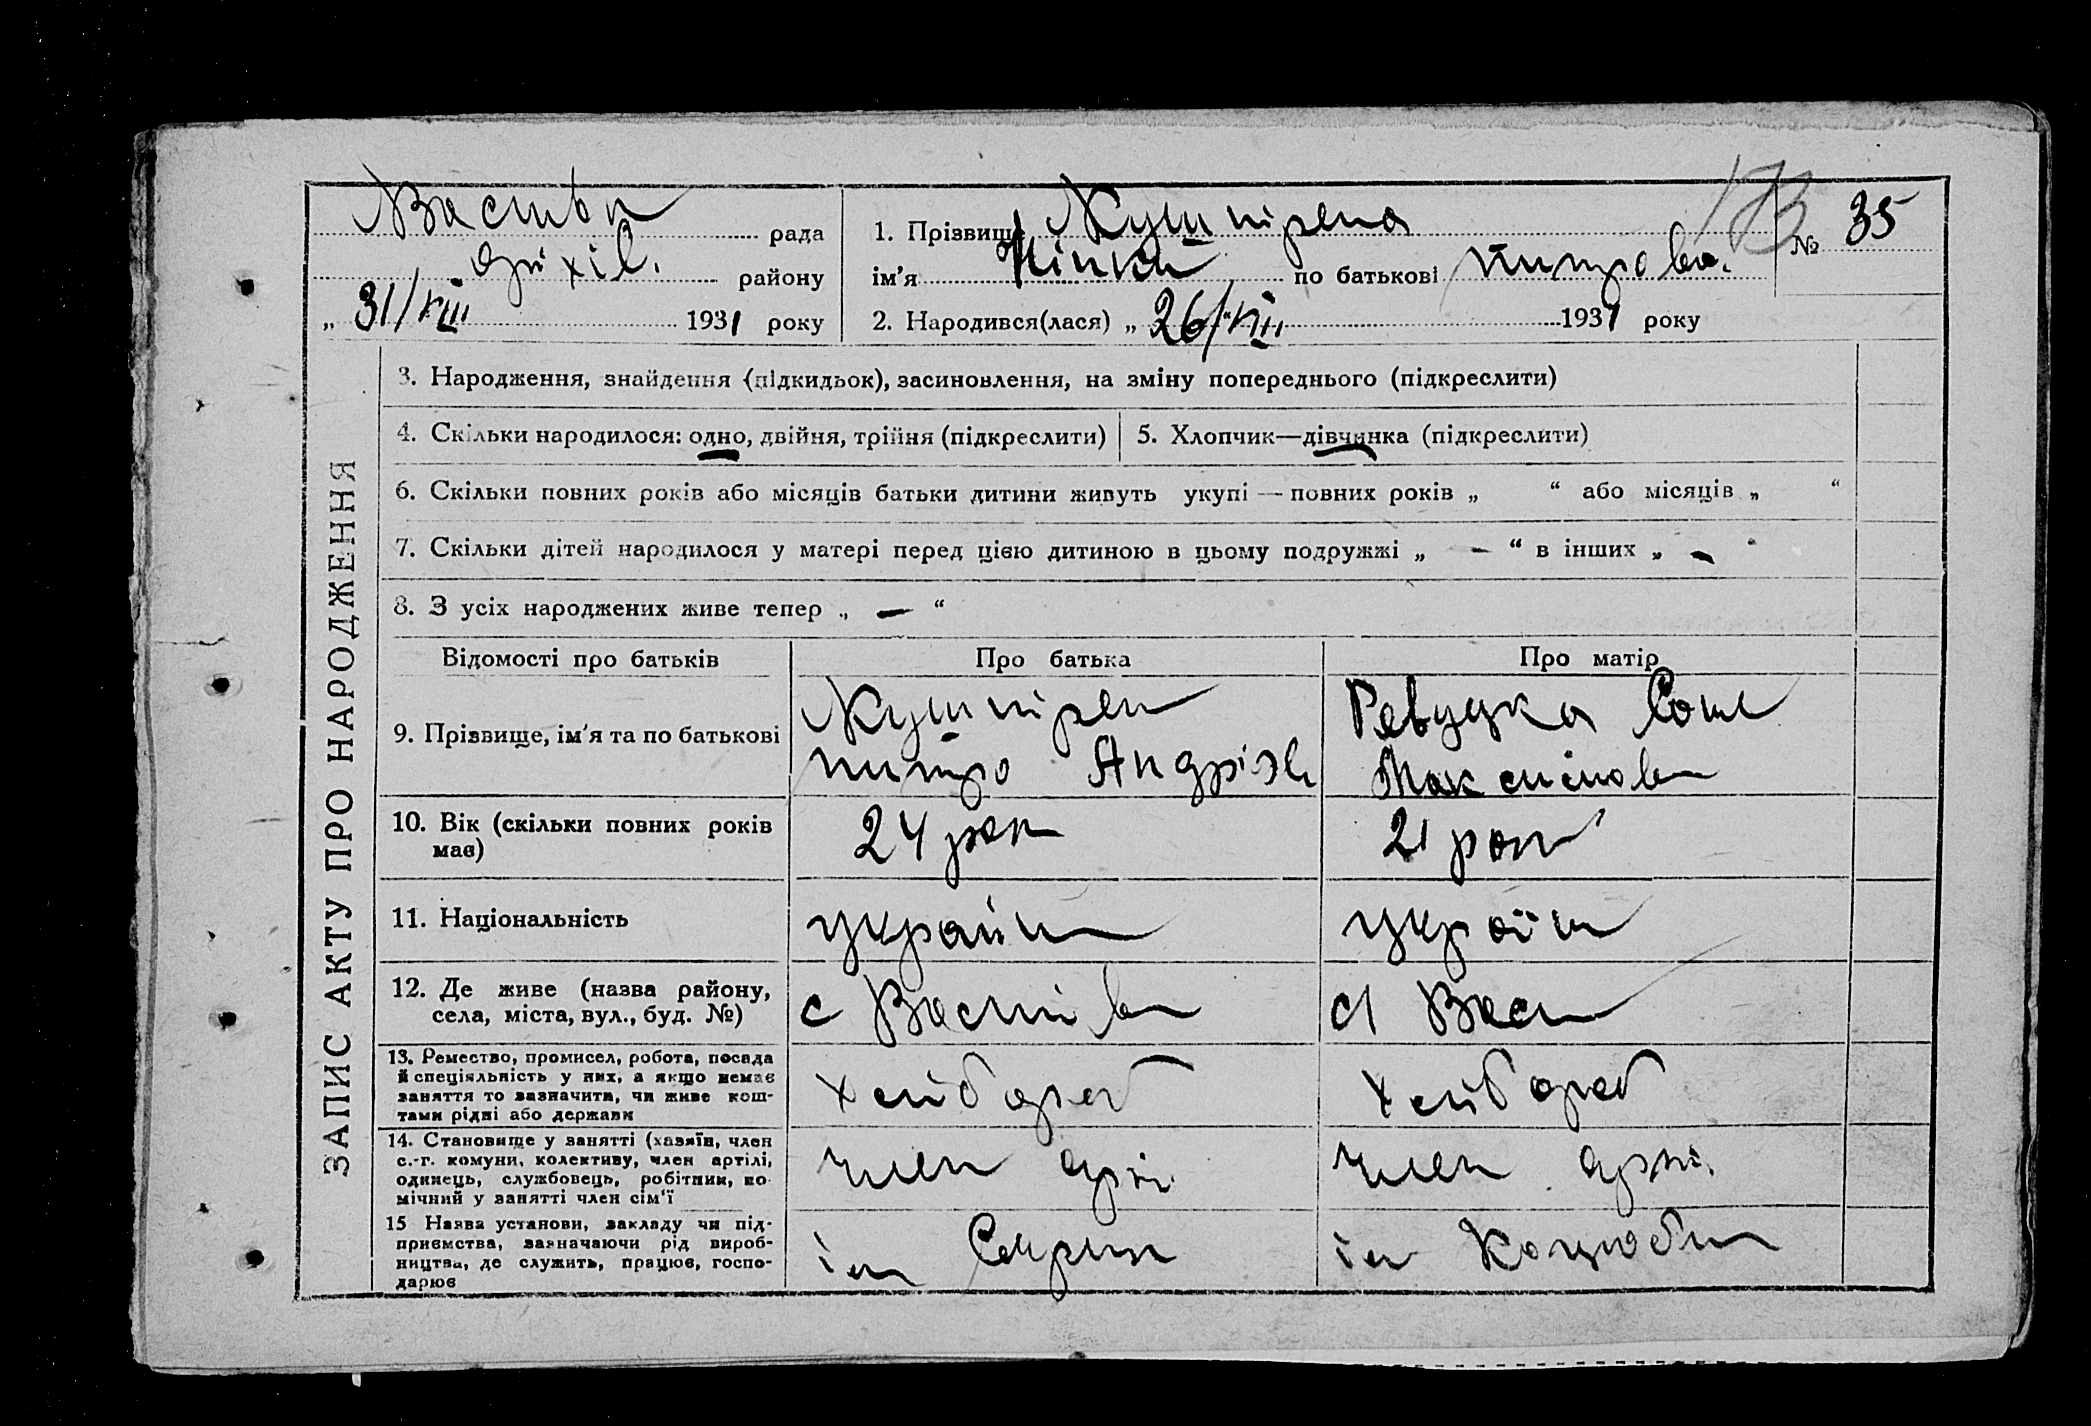 Васинівк рада
Оріхів. району
„ 31/VIII 1931 року
1. Прізвище Кушнірена
ім'я Нінка по батькові Питрова.
2. Народився(лася) „ 26/VIII 1931 року
173
№ 35
ЗАПИС АКТУ ПРО НАРОДЖЕННЯ
3. Народження, знайдення (підкидьок), засиновлення, на зміну попереднього (підкреслити)
4. Скільки народилося: одно, двійня, трійня (підкреслити)
5. Хлопчик—дівчинка (підкреслити)
6. Скільки повних років або місяців батьки дитини живуть укупі — повних років „ “ або місяців „ “
7. Скільки дітей народилося у матері перед цією дитиною в цьому подружжі „ - “ в інших „ - “
8. З усіх народжених живе тепер „ — “
Відомості про батьків
Про батька
Про матір
9. Прізвище, ім'я та по батькові
Кушнірен
Питро Андрієв
Ревуцка
Максимов
10. Вік (скільки повних років
має)
24 рок
21 рок
11. Національність
україн
україн
12. Де живе (назва району,
села, міста, вул., буд. №)
с
с Вас
13. Ремество, промисел, робота, посада
й спеціяльність у них, а якщо немає
заняття то зазначити, чи живе кош-
тами рідні або держави
хлібороб
хлібороб
14. Становище у занятті (хазяїн, член
с.-г. комуни, колективу, член артілі,
одинець, службовець, робітник, по-
мічний у занятті член сім'ї
член арті.
член арті.
15 Назва установи, закладу чи під-
приємства, зазначаючи рід вироб-
ництва, де служить, працює, госпо-
дарює
ім
ім Коцюбин